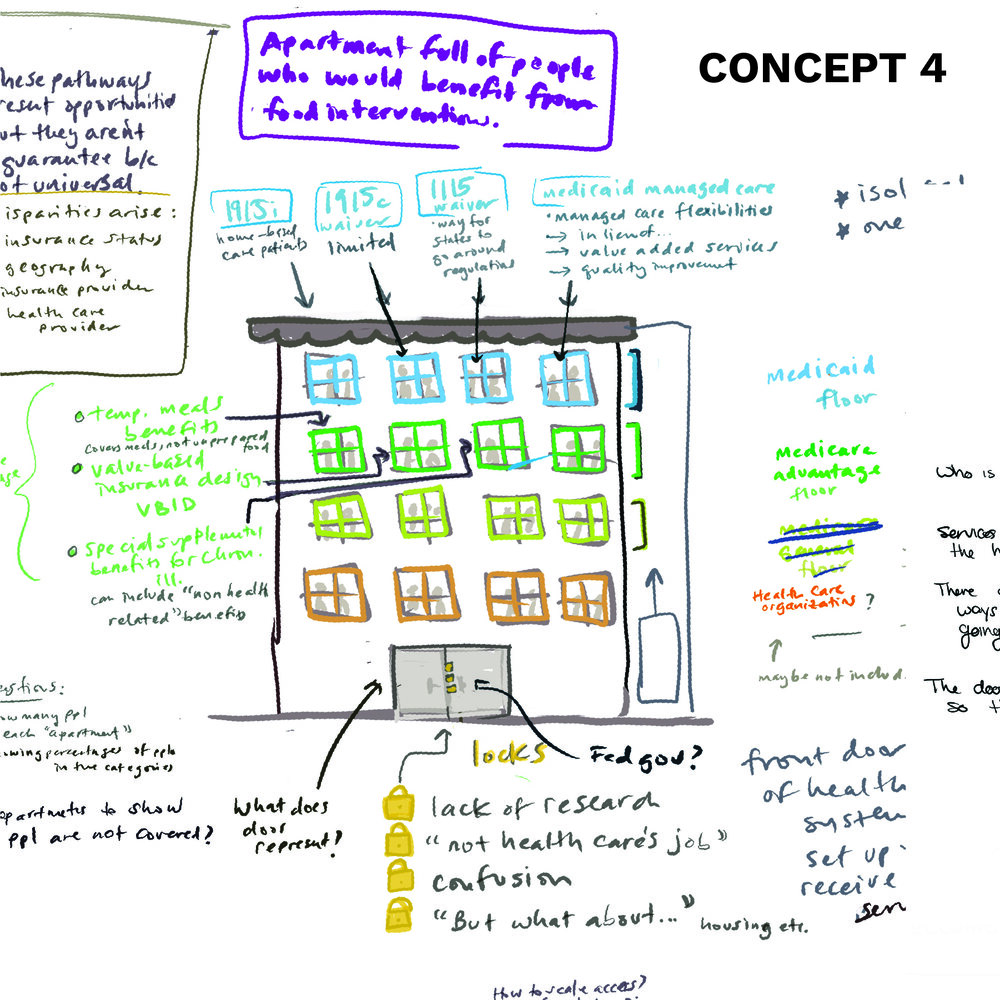 CONCEPT 4
Apartment full of people
who would benefit from
food intervention.
these pathways
but they aren't
guarantee b/c
not universal.
isparities arise:
insurance status
geography
insurance provider
health care
provider
1915i
home-based
care patients
1915c
waiver
limited
1115
waiver
• way for
states to
go around
regulations
medicaid managed care
• managed care flexibilities
→ in lieu of...
→ value added services
→ quality improvement
* isol
* one
temp. meals
benefits
covers meals, not unprepared
food
value-based
insurance design
VBID
special supplemental
benefits for chron.
ill.
can include "non health
related" benefits
Medicaid
floor
Medicare
advantage
floor
medicare
general
floor
Health Care
organizations ?
maybe not includ.
Who is
services
the h
There
ways
going
The doo
so ti
how many ppl
each "apartment"
owing percentages of ppl
in the categories
apartments to show
ppl are not covered?
What does
door
represent?
locks
Fed gov?
lack of research
"not health care's job"
confusion
"But what about..." housing etc.
front door
of health
system
set up
receive
serv
How to scale access?